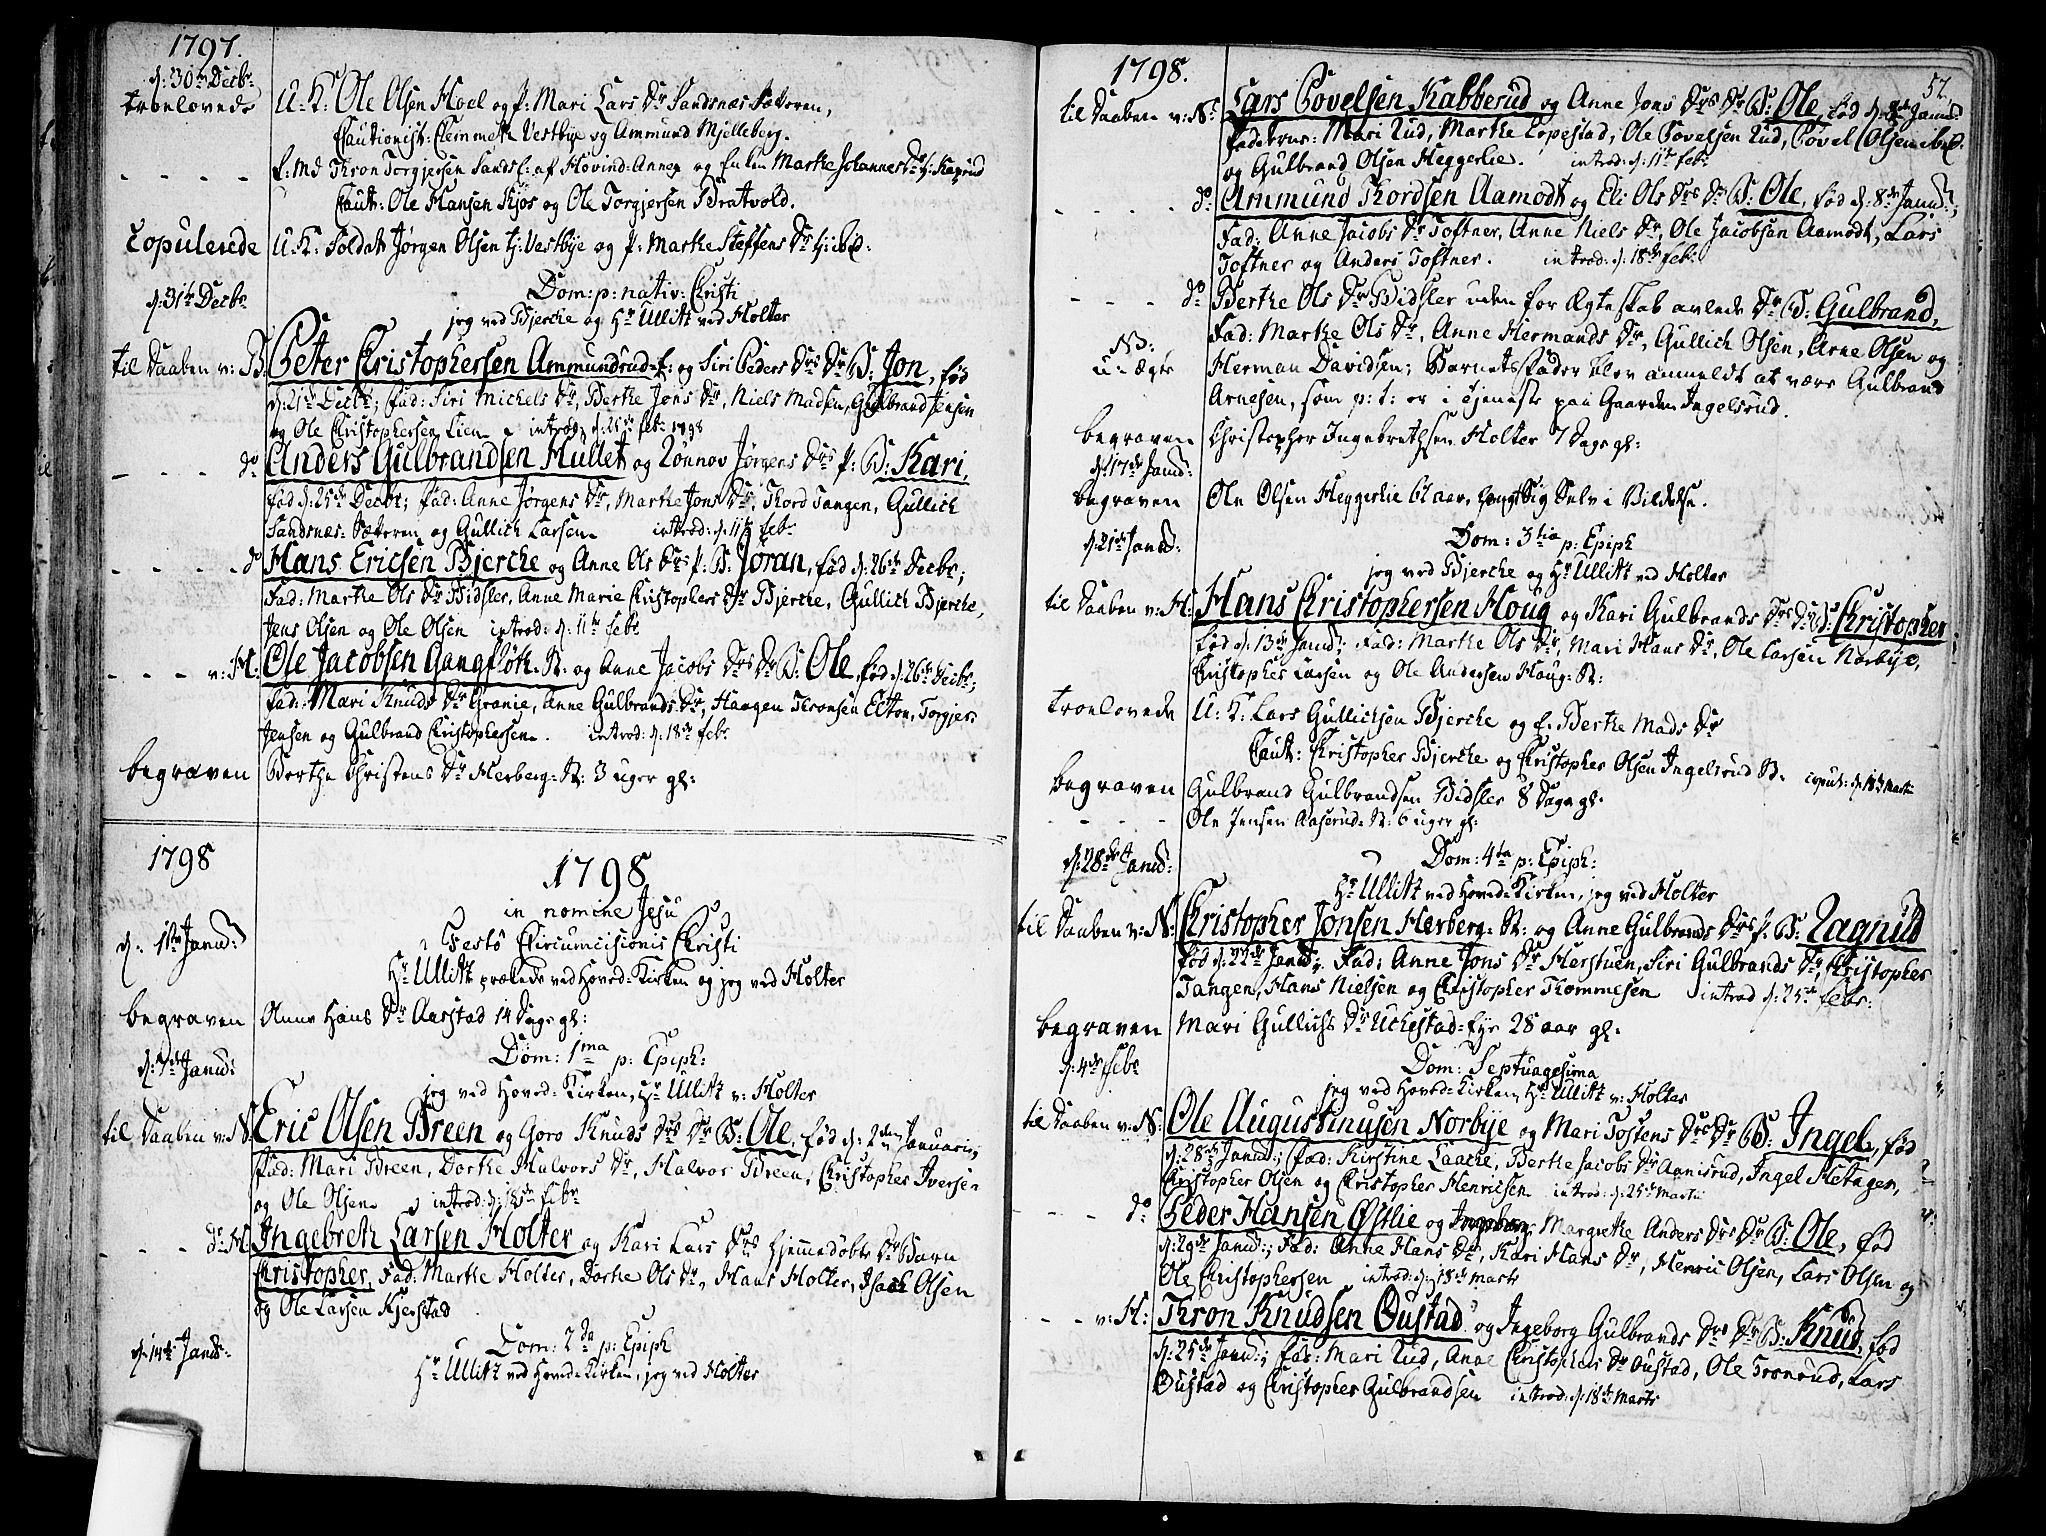 1797.
d: 30te Decbr
troelovede U: K: Ole Olsen Hoel og P: Mari Lars Dr Sandsnæs Sæteren,
Cautionist: Clemmet Vestbye og Ammund Mjelleberg.
E: Md Thron Torgjersen Sands E: af Hovind Annex og Enken Marthe Johannes Dr
Caut: Ole Hansen Kjos og Ole Torgjersen Bratvold.
Copulerede U: K: Soldat Jørgen Olsen tj: Vestbye og P: Marthe Steffens Dr
d: 31te Decbr Dom: p: nativ: Christi
jeg ved Bjerche og Hr Ullitz ved Holter
til Daaben v: B. Peter Christophersen Ammundrud E: og Siri Peders Drs Dr B: Jon, fød
d: 21de Decbr; fad: Siri Michels Dr, Berthe Jons Dr, Niels Madsen, Gulbrand Jensen
og Ole Christophersen Lien introd: febr 1798
do Anders Gulbrandsen Hullet og Rønnov Jørgens Drs P: B: Kari,
fød d: 25de Decbr; fad: Anne Jørgens Dr, Marthe Jons Dr, Thord Tangen, Gullich
Sandsnæs-Sæteren og Gullich Larsen introd: d: 11te febr
do Hans Ericsen Bjerche og Anne Ols Drs P: B: Joran, fød d: 26de Decbr;
Fad: Marthe Ols Dr Bidsler, Anne Marie Christophers Dr Bjerche, Gullich Bjerche,
Jens Olsen og Ole Olsen introd: d: 11te febr
v: H: Ole Jacobsen Gangfløth N: og Anne Jacobs Drs Dr B: Ole, fød d: 26de Decbr;
fad: Mari Knuds Dr Granie, Anne Gulbrands Dr, Haagen Thronsen Elton, Torgjer
Jensen og Gulbrand Christophersen. introd: d: 18de febr
begraven Berthe Christens Dr Herberg N: 3 uger gl:
1798 1798
in nomine Jesu
d: 1ste Janud: Festo Circumcisionis Christi
Hr Ullitz prækede ved Hoved-Kirken og jeg ved Holter
begraven Anne Hans Dr Aarstad 14 Dage gl:
d: 7de Janud: Dom: 1ma p: Epiph:
jeg ved Hoved-Kirken, Hr Ullitz v: Holter
til Daaben v: N: Eric Olsen Breen og Goro Knuds Drs Dr B: Ole, fød d: 2den Januari;
fad: Mari Breen, Dorthe Halvors Dr, Halvor Breen, Christopher Iversen
og Ole Olsen introd: d: 18de febr
do H: Ingebreth Larsen Holter og Kari Lars Drs hjemmedøbte Dr Barn
Christopher, Fad: Marthe Holter, Dorthe Ols Dr, Hans Holter, Isach Olsen
og Ole Larsen Kjerstad
d: 14de Janud: Dom: 2da p: Epiph
Hr Ullitz ved Hoved-Kirken, jeg ved Holter
1798. 57.
til Daaben v: N: Lars Povelsen Kabberud og Anne Jons Drs Dr B: Ole, fød d: Janud:
fadderne: Mari Rud, Marthe Lopestad, Ole Povelsen Rud, Povel Olsen ibid.
og Gulbrand Olsen Heggerlie. introd: d: 11te febr
do Ammund Thordsen Aamodt og Eli Ols Drs Dr B: Ole, fød d: 8de Janud;
Fad: Anne Jacobs Dr Toftner, Anne Niels Dr, Ole Jacobsen Aamodt, Lars
Toftner og Anders Toftner. introd: d: 18de febr
do Berthe Ols Dr Bidsler uden for Ægteskab avlede Dr B: Gulbrand,
NB: u-ægte Fad: Marthe Ols Dr, Anne Hermands Dr, Gullich Olsen, Arne Olsen og
Herman Davidsen; Barnets Fader blev anmeldt at være Gulbrand
Arnesen, som p: t: er i tjeneste paa Gaarden Ingelsrud.
begraven Christopher Ingebrethsen Holter 7 Dage gl:
d: 17de Janud:
begraven Ole Olsen Heggerlie 61 aar, hængt Sig Selv i Vildelse.
d: 21de Janud: Dom: 3tia p: Epiph
jeg ved Bjerche og Hr Ullitz ved Holter
til Daaben v: H: Hans Christophersen Houg og Kari Gulbrands Drs Dr B: Christopher
fød d: 13de Janud; fad: Marthe Ols Dr, Mari Hans Dr, Ole Larsen Norbye,
Christopher Larsen og Ole Andersen Houg N:
troelovede U: K: Lars Gullichsen Bjerche og E: Berthe Mads Dr
Caut: Christopher Bjerche og Christopher Olsen Ingelsrud N. copul: d: 18de Marti
begraven Gulbrand Gulbrandsen Bidsler 8 Dage gl:
Ole Jensen Aaserud N: 6 uger gl:
d: 28de Janud: Dom: 4ta p: Epiph:
Hr Ullitz ved Hoved-Kirken, jeg ved Holter
til Daaben v: N: Christopher Jonsen Herberg N: og Anne Gulbrands Drs P: B: Ragnild
fød d: 22de Janud; Fad: Anne Jons Dr Herstuen, Siri Gulbrands Dr, Christopher
Tangen, Hans Nielsen og Christopher Thommesen introd d: 25de febr:
begraven Mari Gullichs Dr Uchestad-Eye 28 aar gl.
d: 4de febr Dom: Septuagesima
jeg ved Hoved-Kirken, Hr Ullitz v: Holter
til Daaben v: N: Ole Augustinusen Norbye og Mari Tostens Drs Dr B: Ingel, fød
d: 28de Janud:; fad: Kirstine Laache, Berthe Jacobs Dr Aanisrud, Ingel Hetagen,
Christopher Olsen og Christopher Henricsen introd: d: 25de Martii
do Peder Hansen Østlie og Margrethe Anders Drs Dr B: Ole, fød
d: 29de Janud:; Fad: Anne Hans Dr, Kari Hans Dr, Henric Olsen, Lars Olsen og
Ole Christophersen introd: d: 18de Marti
v: H: Thron Knudsen Oustad og Ingeborg Gulbrands Drs Dr B: Knud, fød
d: 25de Janud:; fad: Mari Rud, Anne Christophers Dr Oustad, Ole Tronrud, Lars
Oustad og Christopher Gulbrandsen introd: d: 18de Marti